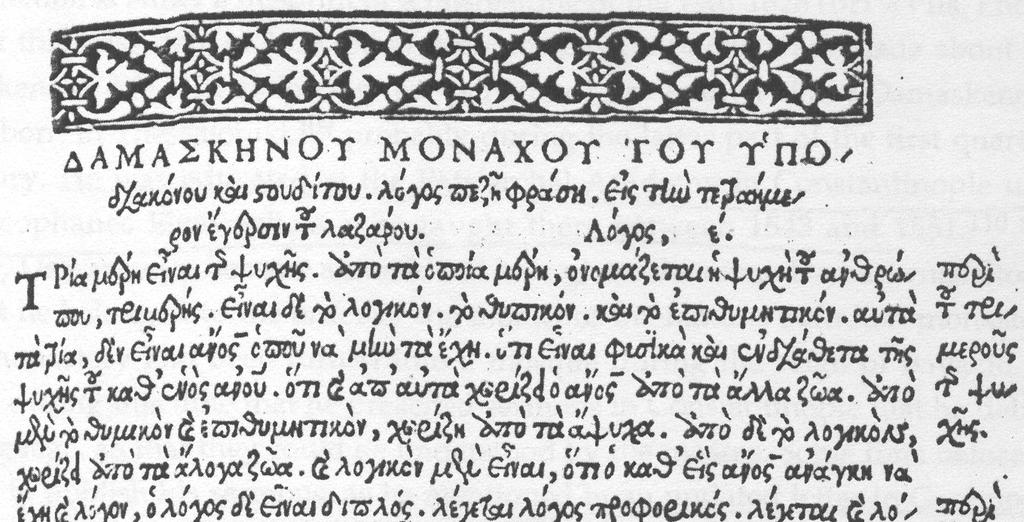 ΔΑΜΑΣΚΗΝΟΥ ΜΟΝΑΧΟΥ ΤΟΥ ὙΠΟ/
διακόνου καὶ στουδίτου. λόγος πεζῇ φράσῃ. Εἰς τὴν τετραήμε/
ρον ἔγερσιν τοῦ λαζάρου. Λόγος, έ.
ΤΡία μέρη εἶναι τῆς ψυχῆς. ἀπὸ τὰ ὁποῖα μέρη, ὀνομάζεται ἡ ψυχὴ τοῦ ἀνθρώ/
που, τριμερής. εἶναι δὲ τὸ λογικόν. τὸ θυμικόν. καὶ τὸ ἐπιθυμητικόν. αὐτὰ
τὰ τρία, δὲν εἶναι ἄνος ὁποῦ νὰ μὴν τὰ ἔχῃ. ὅτι εἶναι φισϊκὰ καὶ ἐνδιάθετα τῆς
ψυχῆς τοῦ καθενὸς ἀνου. ὅτι καὶ ἀπ αὐτὰ χωρίζει ὁ ἄνος ἀπὸ τὰ ἄλλα ζῶα. ἀπὸ
μὲν τὸ θυμικὸν καὶ ἐπιθυμητικὸν, χωρίζη ἀπὸ τὰ ἄψυχα. ἀπὸ δὲ τὸ λογικὸν,
χωρίζει ἀπὸ τὰ ἄλογα ζῶα. καὶ λογικὸν μὲν εἶναι, ὅτι ὁ καθ εἷς ἄνος ἀνάγκη νὰ
ἔχη καὶ λόγον, ὁ λόγος δὲ εἶναι διπλός. λέγεται λόγος προφορικός. λέγεται καὶ λό/
περὶ
τοῦ τρι/
μεροῦς
τῆς ψυ/
χῆς.
περὶ